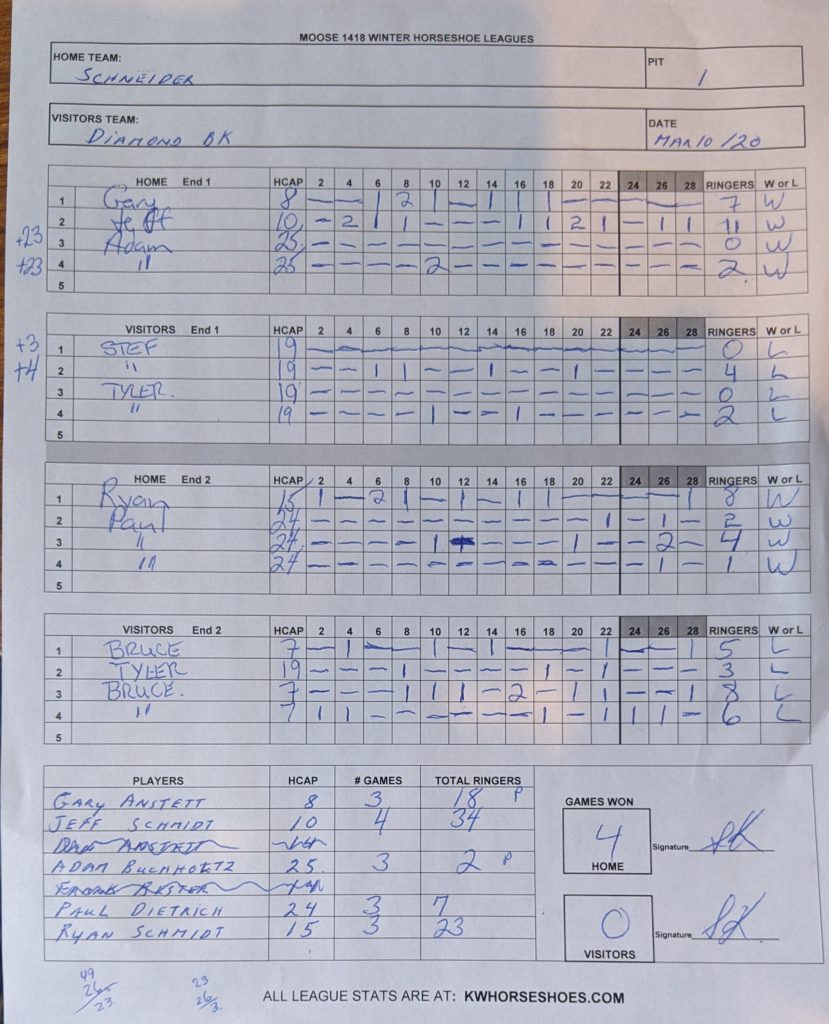 MOOSE 1418 WINTER HORSESHOE LEAGUES
HOME TEAM: PIT
SCHNEIDER 1
VISITORS TEAM: DATE
DIAMOND BK MAR 10/20
HOME End 1 HCAP 2 4 6 8 10 12 14 16 18 20 22 24 26 28 RINGERS W or L
1 Gary 8 — — 1 2 1 — 1 1 1 — — — — — 7 W
2 Jeff 10 — 2 1 1 — — — 1 1 2 1 — 1 1 11 W
+23 3 Adam 25 — — — — — — — — — — — — — — 0 W
+23 4 " 25 — — — — 2 — — — — — — — — — 2 W
5
VISITORS End 1 HCAP 2 4 6 8 10 12 14 16 18 20 22 24 26 28 RINGERS W or L
+3 1 STEF 19 — — — — — — — — — — — — — — 0 L
+4 2 " 19 — — 1 1 — — 1 — — 1 — — — — 4 L
3 TYLER. 19 — — — — — — — — — — — — — — 0 L
4 " 19 — — — — 1 — — 1 — — — — — — 2 L
5
HOME End 2 HCAP 2 4 6 8 10 12 14 16 18 20 22 24 26 28 RINGERS W or L
1 Ryan 15 1 — 2 1 — 1 — 1 1 — — — — 1 8 W
2 Paul 24 — — — — — — — — — — 1 — 1 — 2 W
3 " 24 — — — — 1 — — — — 1 — — 2 — 4 W
4 " 24 — — — — — — — — — — — — 1 — 1 W
5
VISITORS End 2 HCAP 2 4 6 8 10 12 14 16 18 20 22 24 26 28 RINGERS W or L
1 BRUCE 7 — 1 — — 1 — 1 — — — 1 — — 1 5 L
2 TYLER 19 — — — 1 — — — — 1 — 1 — — — 3 L
3 BRUCE. 7 — — — 1 1 1 — 2 — 1 1 — — 1 8 L
4 " 7 1 1 — — — — — — 1 — 1 1 1 — 6 L
5
PLAYERS HCAP # GAMES TOTAL RINGERS
GARY ANSTETT 8 3 18 P
JEFF SCHMIDT 10 4 34
DAN ANSTETT
ADAM BUCHHOLTZ 25 3 2 P
PAUL DIETRICH 24 3 7
RYAN SCHMIDT 15 3 23
GAMES WON
4 Signature
HOME
0 Signature
VISITORS
49 23
26 26
23 3
ALL LEAGUE STATS ARE AT: KWHORSESHOES.COM